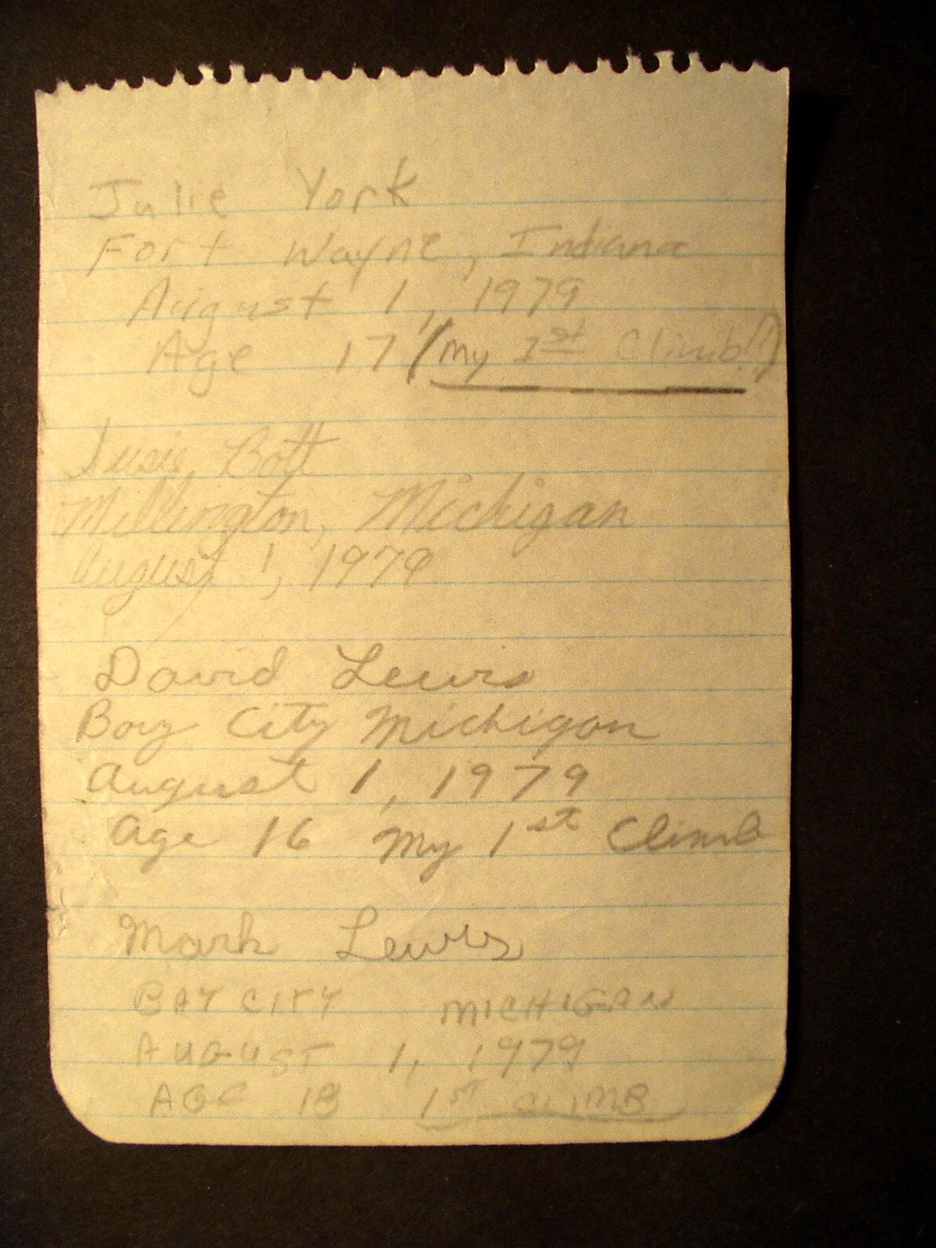 Julie York
Fort Wayne, Indiana
August 1, 1979
Age 17 (My 1st Climb!!)
Susie Bott
Millington, Michigan
August 1, 1979
David Lewis
Bay City Michigan
August 1, 1979
Age 16 My 1st Climb
Mark Lewis
BAY CITY MICHIGAN
AUGUST 1, 1979
AGE 13 1ST CLIMB